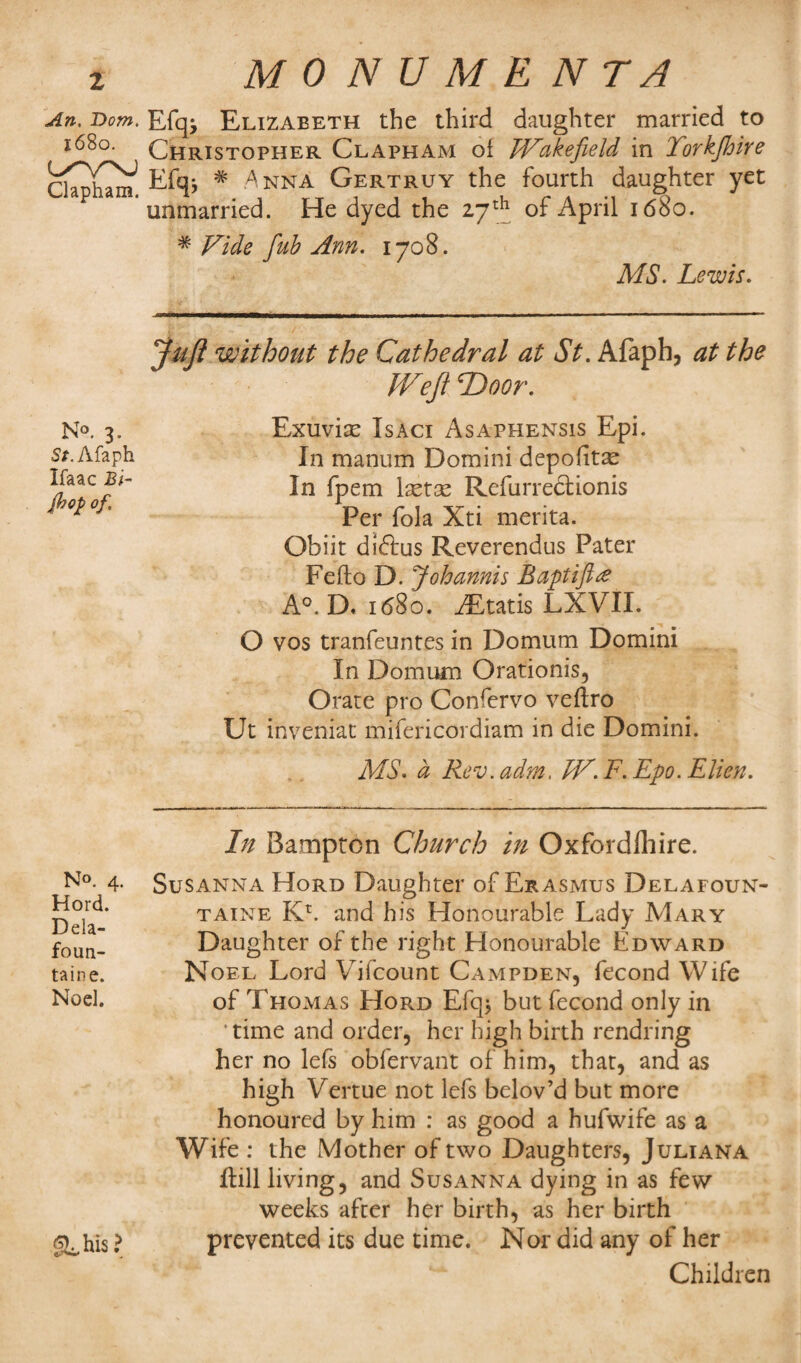 2 MONUMENTA
An. Dom. 1680.
Clapham.
Eſq; ELIZABETH the third daughter married to
CHRISTOPHER CLAPHAM of Wakefield in Yorkſhire
Eſq; * ANNA GERTRUY the fourth daughter yet
unmarried. He dyed the 27th of April 1680.
* Vide ſub Ann. 1708.
MS. Lewis.
Juſt without the Cathedral at St. Aſaph, at the
Weſt Door.
No. 3.
St. Aſaph
Iſaac Bi-
ſhop of.
Exuviæ ISACI ASAPHENSIS Epi.
In manum Domini depoſitæ
In ſpem lætæ Reſurrectionis
Per ſola Xti merita.
Obiit dictus Reverendus Pater
Feſto D. Johannis Baptiſtæ
Ao. D. 1680. Ætatis LXVII.
O vos tranſeuntes in Domum Domini
In Domum Orationis,
Orate pro Conſervo veſtro
Ut inveniat miſericordiam in die Domini.
MS. à Rev. adm. W. F. Epo. Elien.
In Bampton Church in Oxfordſhire.
No. 4.
Hord.
Dela-
foun-
taine.
Noel.
SUSANNA HORD Daughter of ERASMUS DELAFOUN-
TAINE Kt. and his Honourable Lady MARY
Daughter of the right Honourable EDWARD
NOEL Lord Viſcount CAMPDEN, ſecond Wife
of THOMAS HORD Eſq; but ſecond only in
time and order, her high birth rendring
her no leſs obſervant of him, that, and as
high Vertue not leſs belov'd but more
honoured by him : as good a huſwife as a
Wife : the Mother of two Daughters, JULIANA
ſtill living, and SUSANNA dying in as few
weeks after her birth, as her birth
Q. his ?
prevented its due time. Nor did any of her
Children